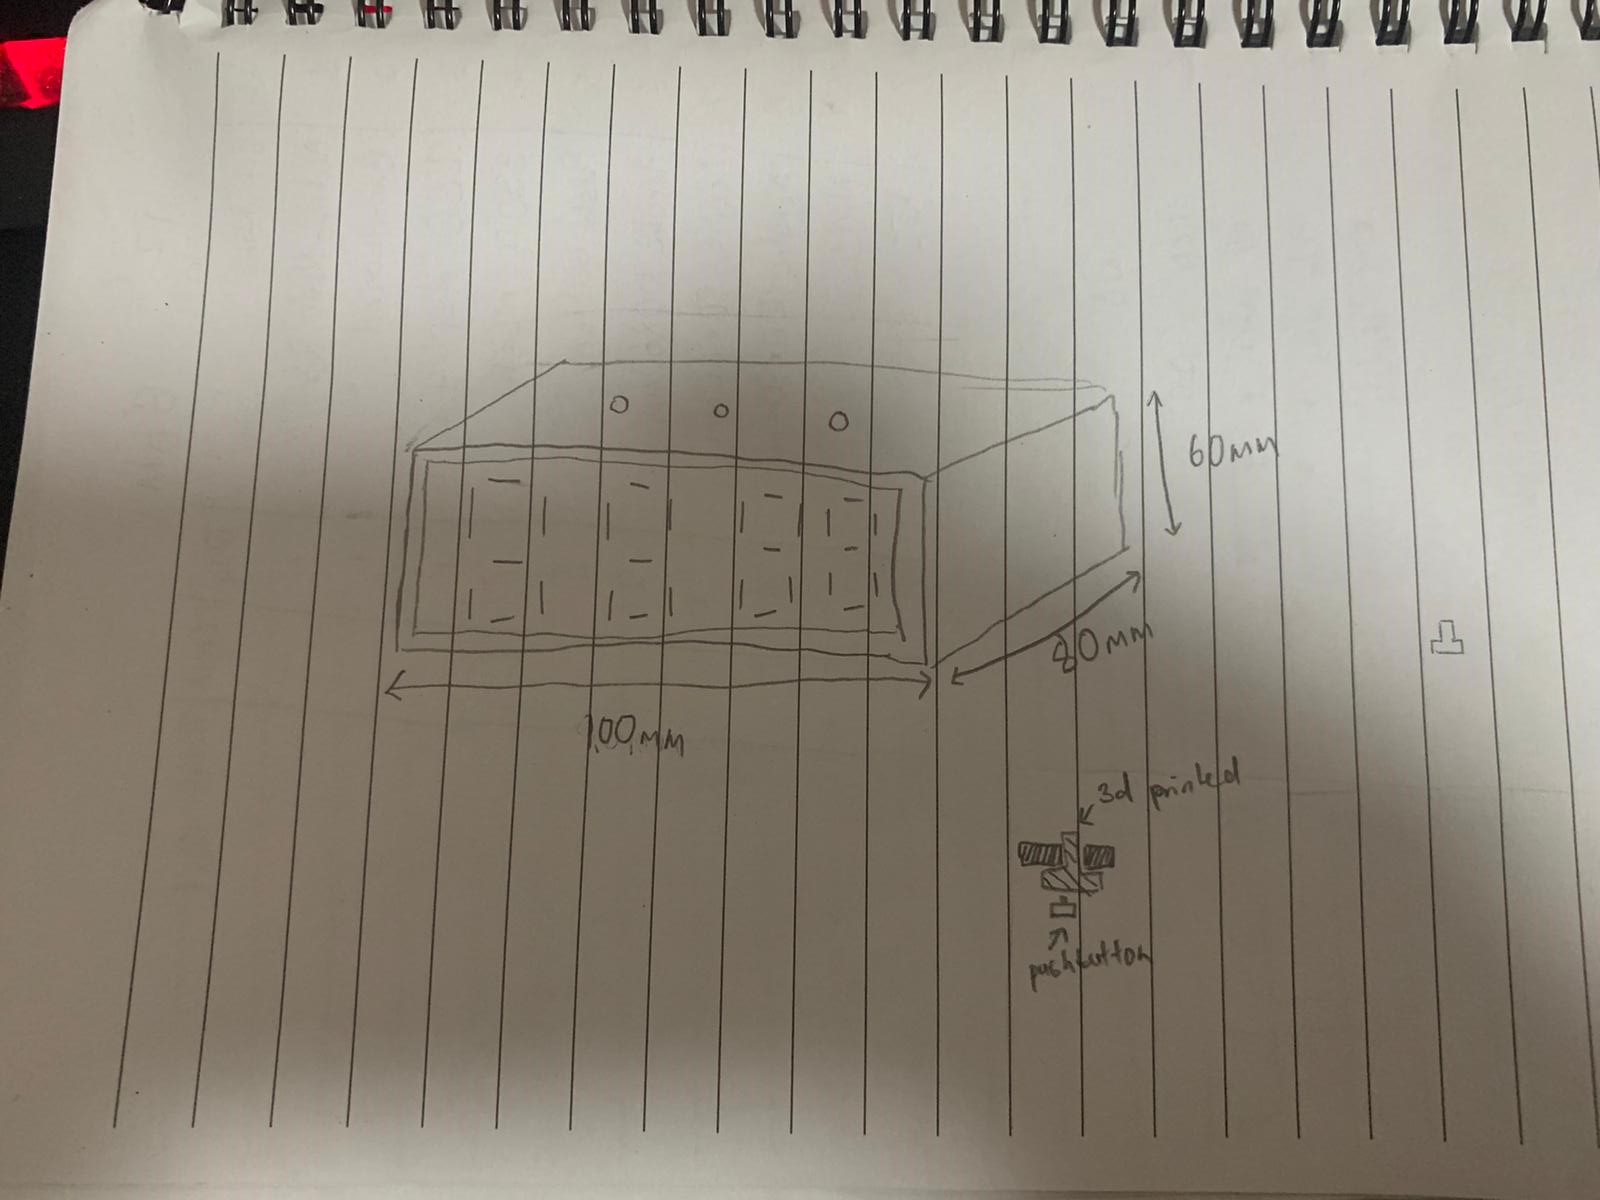 60mm
80mm
100mm
3d printed
pushbutton